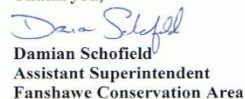 Damian Schofield
Damian Schofield
Assistant Superintendent
Fanshawe Conservation Area